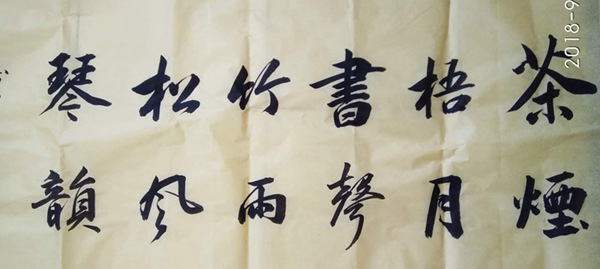 茶煙
梧月
書聲
竹雨
松风
琴韻
2018-9